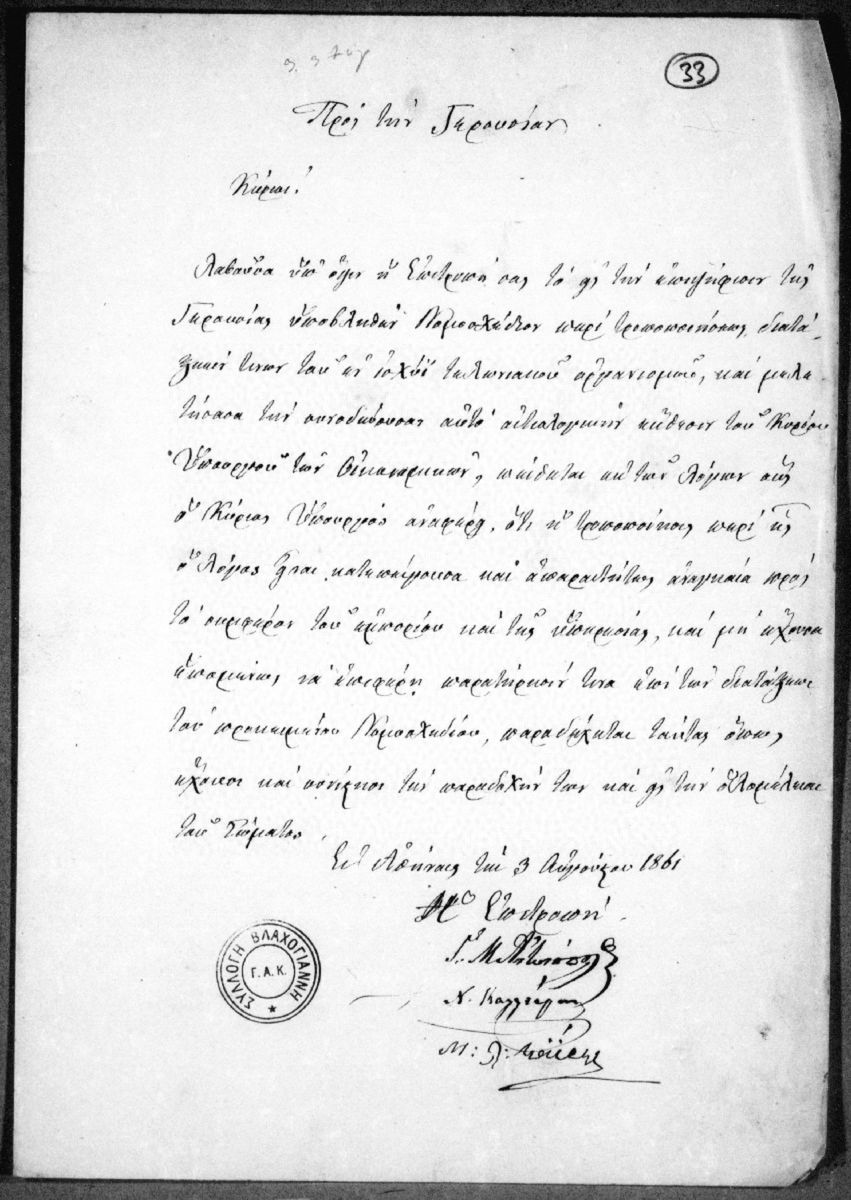 33
Πρὸς τὴν Γερουσίαν
Κύριοι!
Λαβοῦσα ὑπ' ὄψιν ἡ Ἐπιτροπή σας τὸ εἰς τὴν ἐπιψήφισιν τῆς
Γερουσίας ὑποβληθὲν Νομοσχέδιον περὶ τροποποιήσεως διατά-
ξεών τινων τοῦ ἐν ἰσχύϊ τελωνιακοῦ ὀργανισμοῦ, καὶ μελε
τήσασα τὴν συνοδεύουσαν αὐτὸ αἰτιολογικὴν ἔκθεσιν τοῦ Κυρίου
Ὑπουργοῦ τῶν Οἰκονομικῶν, πείθεται ἐκ τῶν λόγων οὓς
ὁ Κύριος Ὑπουργὸς ἀναφέρει, ὅτι ἡ τροποποίησις περὶ ἧς
ὁ λόγος εἶναι κατεπείγουσα καὶ ἀπαραιτήτως ἀναγκαία πρὸς
τὸ συμφέρον τοῦ ἐμπορίου καὶ τῆς ὑπηρεσίας, καὶ μὴ ἔχουσα
ἑπομένως νὰ ἐπιφέρῃ παρατήρησίν τινα ἐπὶ τῶν διατάξεων
τοῦ προκειμένου Νομοσχεδίου, παραδέχεται ταύτας ὅπως
ἔχουσι καὶ συνιστᾷ τὴν παραδοχήν των καὶ εἰς τὴν ὁλομέλειαν
τοῦ Σώματος.
Ἐν Ἀθήναις τὴν 3 Αὐγούστου 1861
Ἡ Ἐπιτροπή
Γ. Μ.
Ν.
Μ:
ΣΥΛΛΟΓΗ ΒΛΑΧΟΓΙΑΝΝΗ
Γ.Α.Κ.